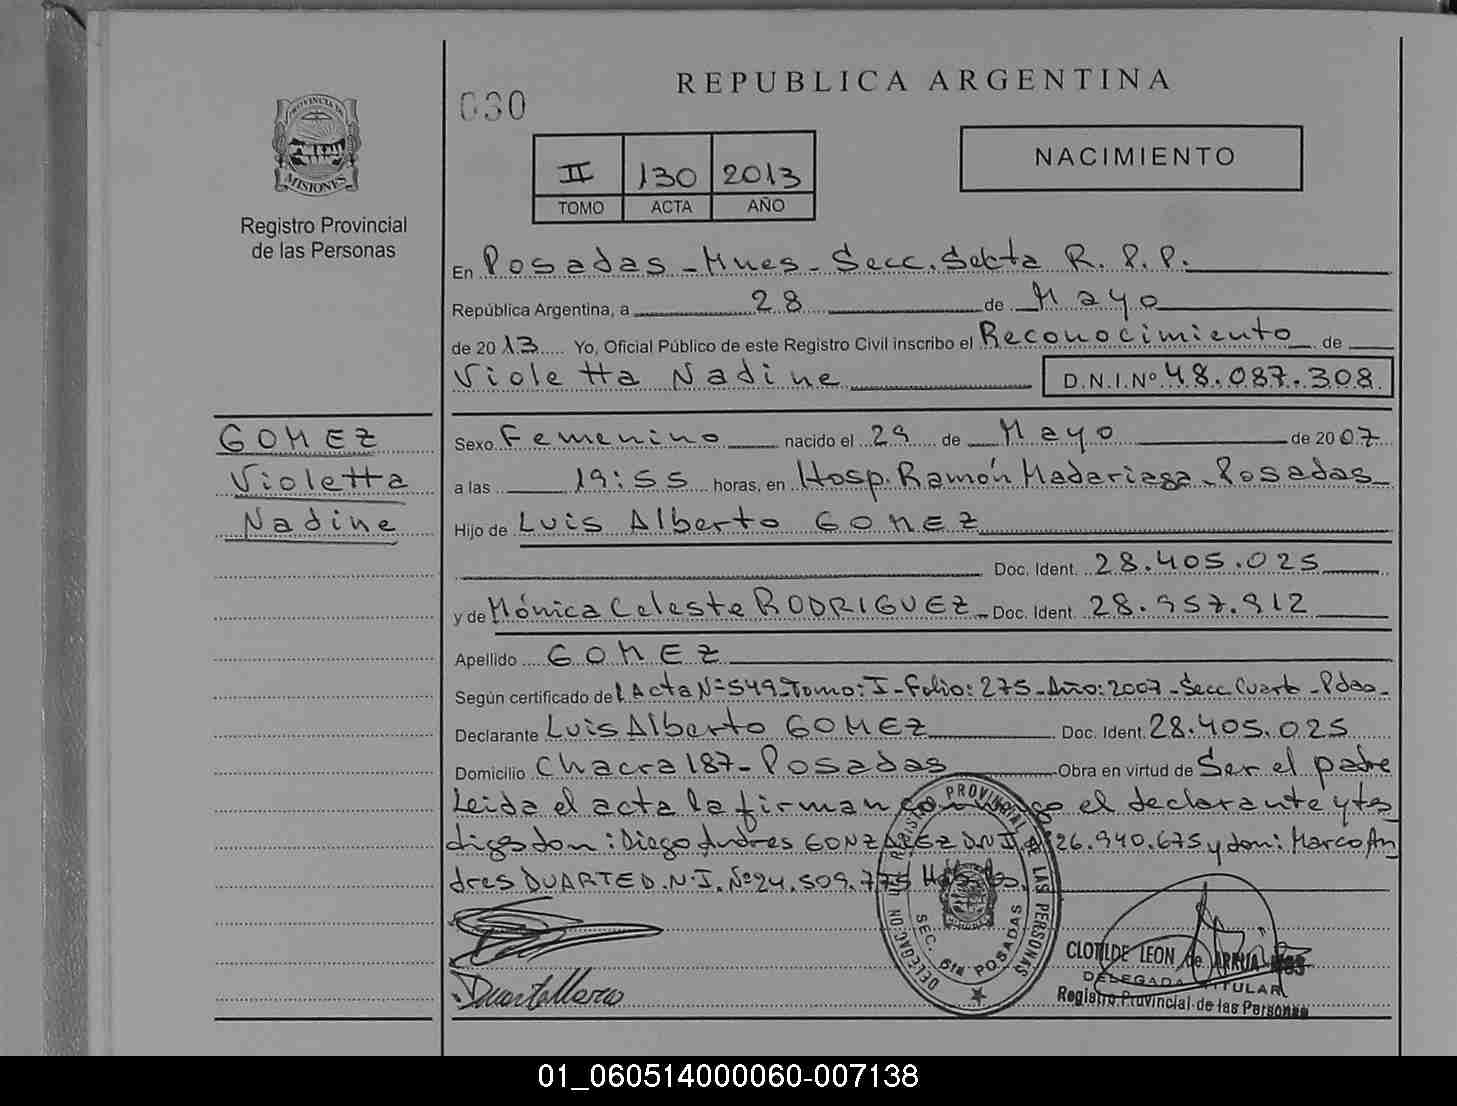 REPUBLICA ARGENTINA
030
PROVINCIA DE
MISIONES
Registro Provincial
de las Personas
II 130 2013
TOMO ACTA AÑO
NACIMIENTO
En Posadas - Mnes - Secc. Sexta R. P. P.
República Argentina, a 28 de Mayo
de 2013 Yo, Oficial Público de este Registro Civil inscribo el Reconocimiento de
Violetta Nadine D.N.I.Nº 48.087.308
GOMEZ
Violetta
Nadine
Sexo Femenino nacido el 29 de Mayo de 2007
a las 19:55 horas, en Hosp. Ramón Madariaga - Posadas
Hijo de Luis Alberto GOMEZ
Doc. Ident. 28.405.025
y de Mónica Celeste RODRIGUEZ - Doc. Ident. 28.957.912
Apellido GOMEZ
Según certificado de Acta Nº 549 - Tomo: I - Folio: 275 - Año: 2007 - Secc Cuarta - Pdas -
Declarante Luis Alberto GOMEZ Doc. Ident. 28.405.025
Domicilio Chacra 187 - Posadas Obra en virtud de Ser el padre
Leida el acta la firman conmigo el declarante y tes
tigos don: Diego Andres GONZALEZ D.N.I. Nº 26.940.675 y don: Marco An
dres DUARTE D.N.I. Nº 24.509.775
REGISTRO PROVINCIAL DE LAS PERSONAS
DELEGACION
SEC. 6ta POSADAS
Duarte Marco
CLOTILDE LEON de ARRUA
DELEGADA TITULAR
Registro Provincial de las Personas
01_060514000060-007138